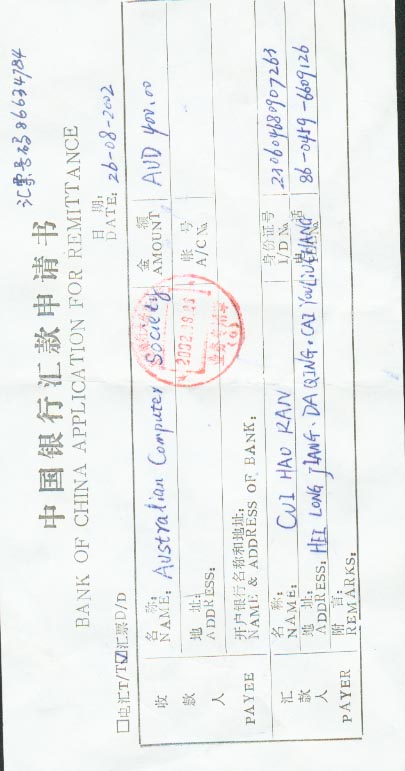 汇票号码 86634784
中国银行汇款申请书
BANK OF CHINA APPLICATION FOR REMITTANCE
日 期:
DATE: 26-08-2002
□电汇T/T ☑汇票D/D
收款人
PAYEE
名 称:
NAME: Australian Computer Society
金 额
AMOUNT AUD 400.00
地 址:
ADDRESS:
帐 号
A/C No.
开户银行名称和地址:
NAME & ADDRESS OF BANK:
2002.08.26
(6)
汇款人
PAYER
名 称:
NAME: CUI HAO RAN
身份证号
I/D No.
地 址:
ADDRESS: HEI LONG JIANG. DA QING. CAI YOU LIU CHANG
86-0459-6609126
附 言:
REMARKS: